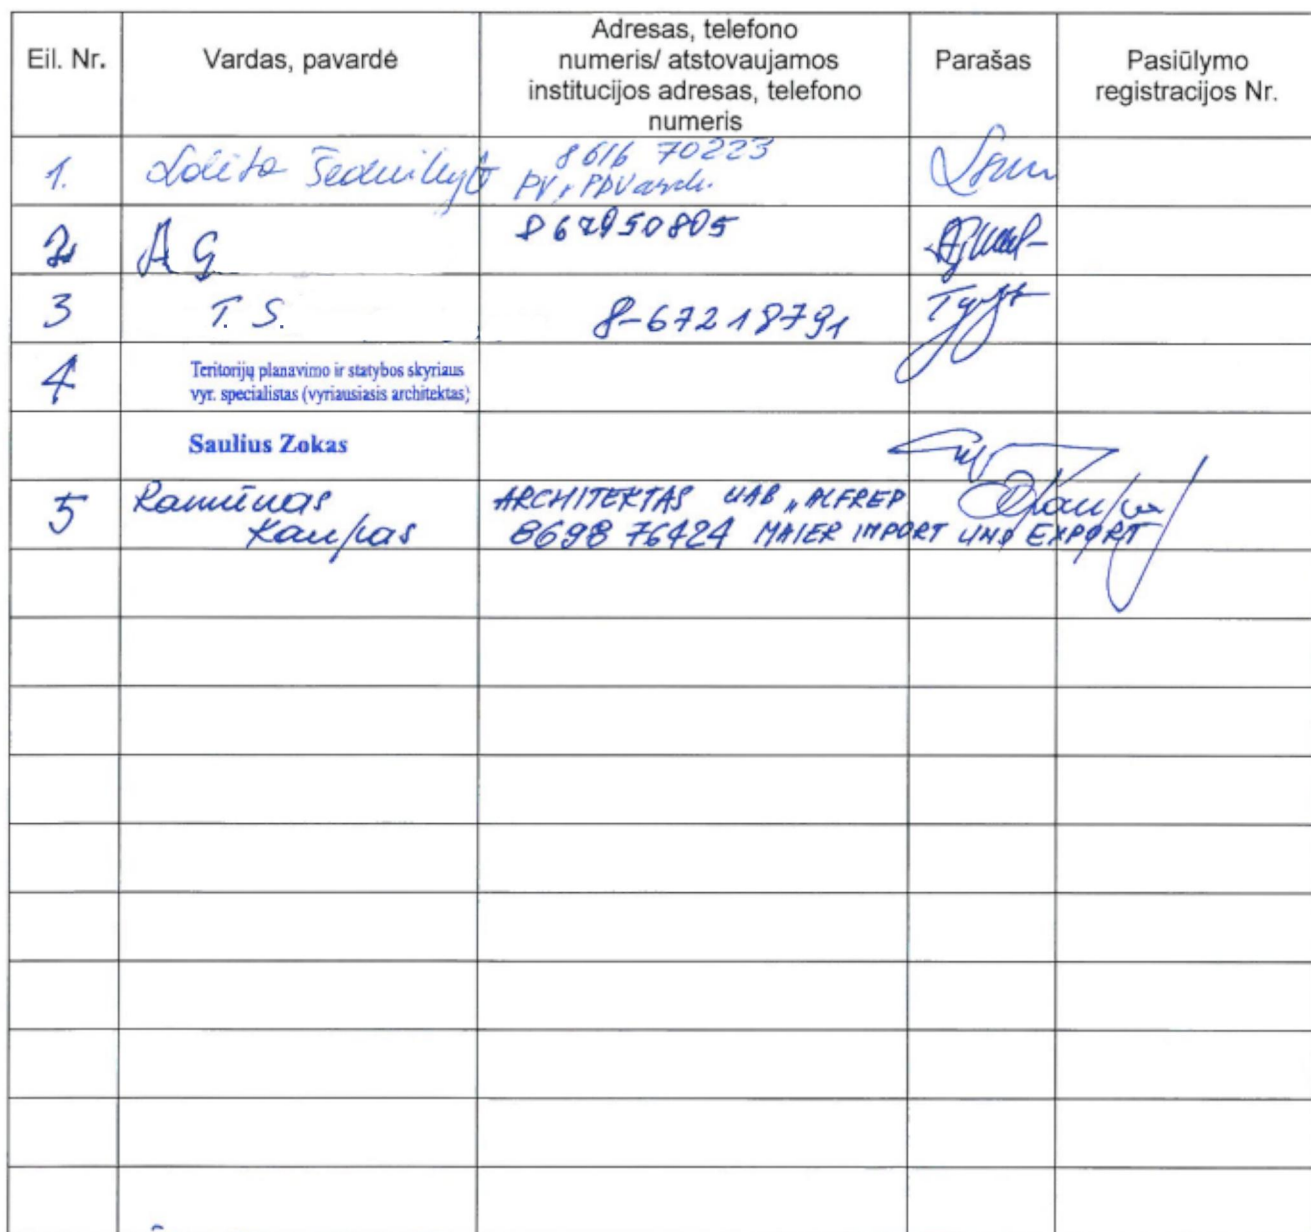 Eil. Nr.
Vardas, pavardė
Adresas, telefono
numeris/ atstovaujamos
institucijos adresas, telefono
numeris
Parašas
Pasiūlymo
registracijos Nr.
1.
Lolita
8616 70223
PV, PDV arch.
2
A G
867950805
3
T. S.
8-67218791
4
Teritorijų planavimo ir statybos skyriaus
vyr. specialistas (vyriausiasis architektas)
Saulius Zokas
5
Ramūnas
Kaupas
ARCHITEKTAS UAB „ALFRED
8698 76424 MAIER IMPORT UND EXPORT